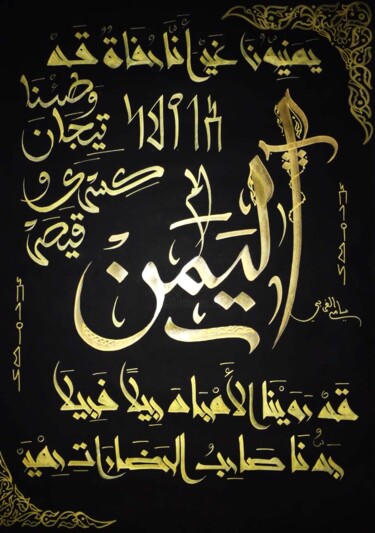 يمنيون غير أنَّا حفاةٌ قد
وطئنا
تيجان
كسرى و
قيصر
اليمن
قد روينا الأمجاد جيلًا فجيلا
جدُّنا صاحبُ الحضاراتِ حِمْيَر